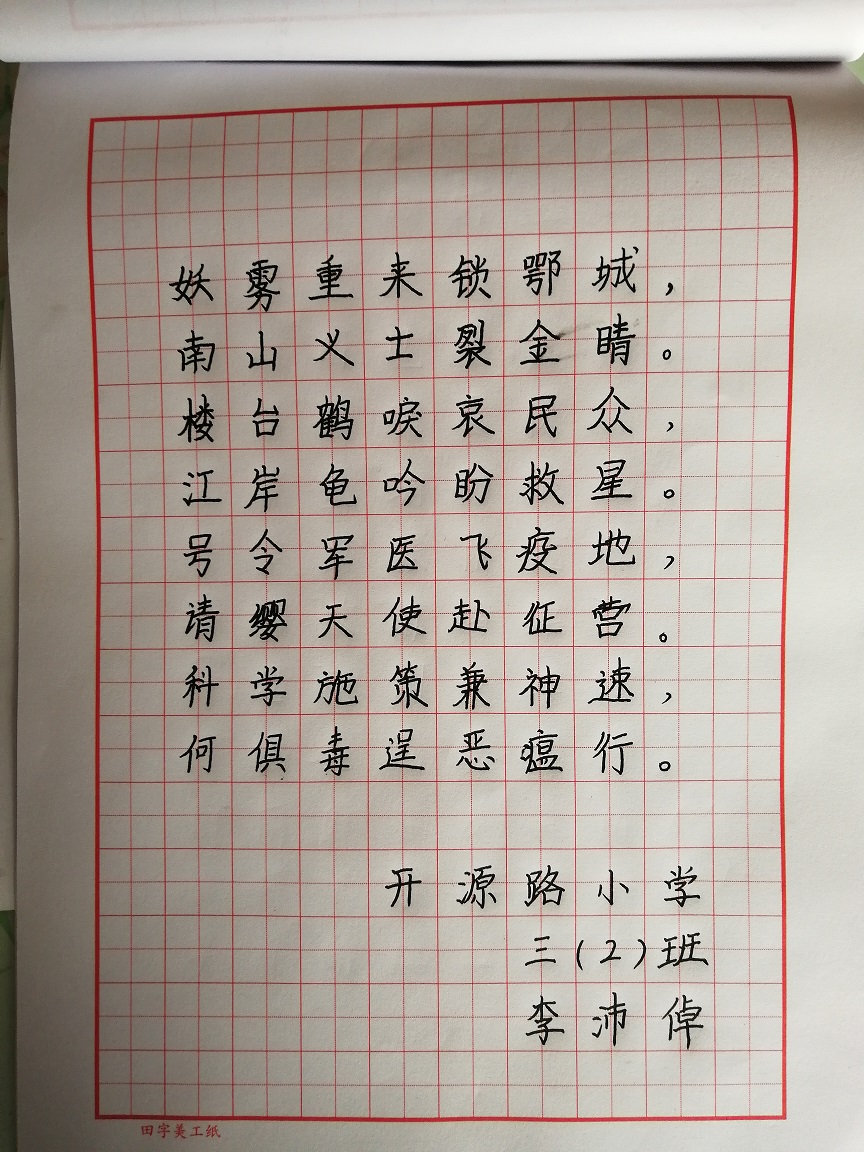 妖雾重来锁鄂城，
南山义士裂金睛。
楼台鹤唳哀民众，
江岸龟吟盼救星。
号令军医飞疫地，
请缨天使赴征营。
科学施策兼神速，
何俱毒逞恶瘟行。
开源路小学
三(2)班
李沛倬
田字美工纸